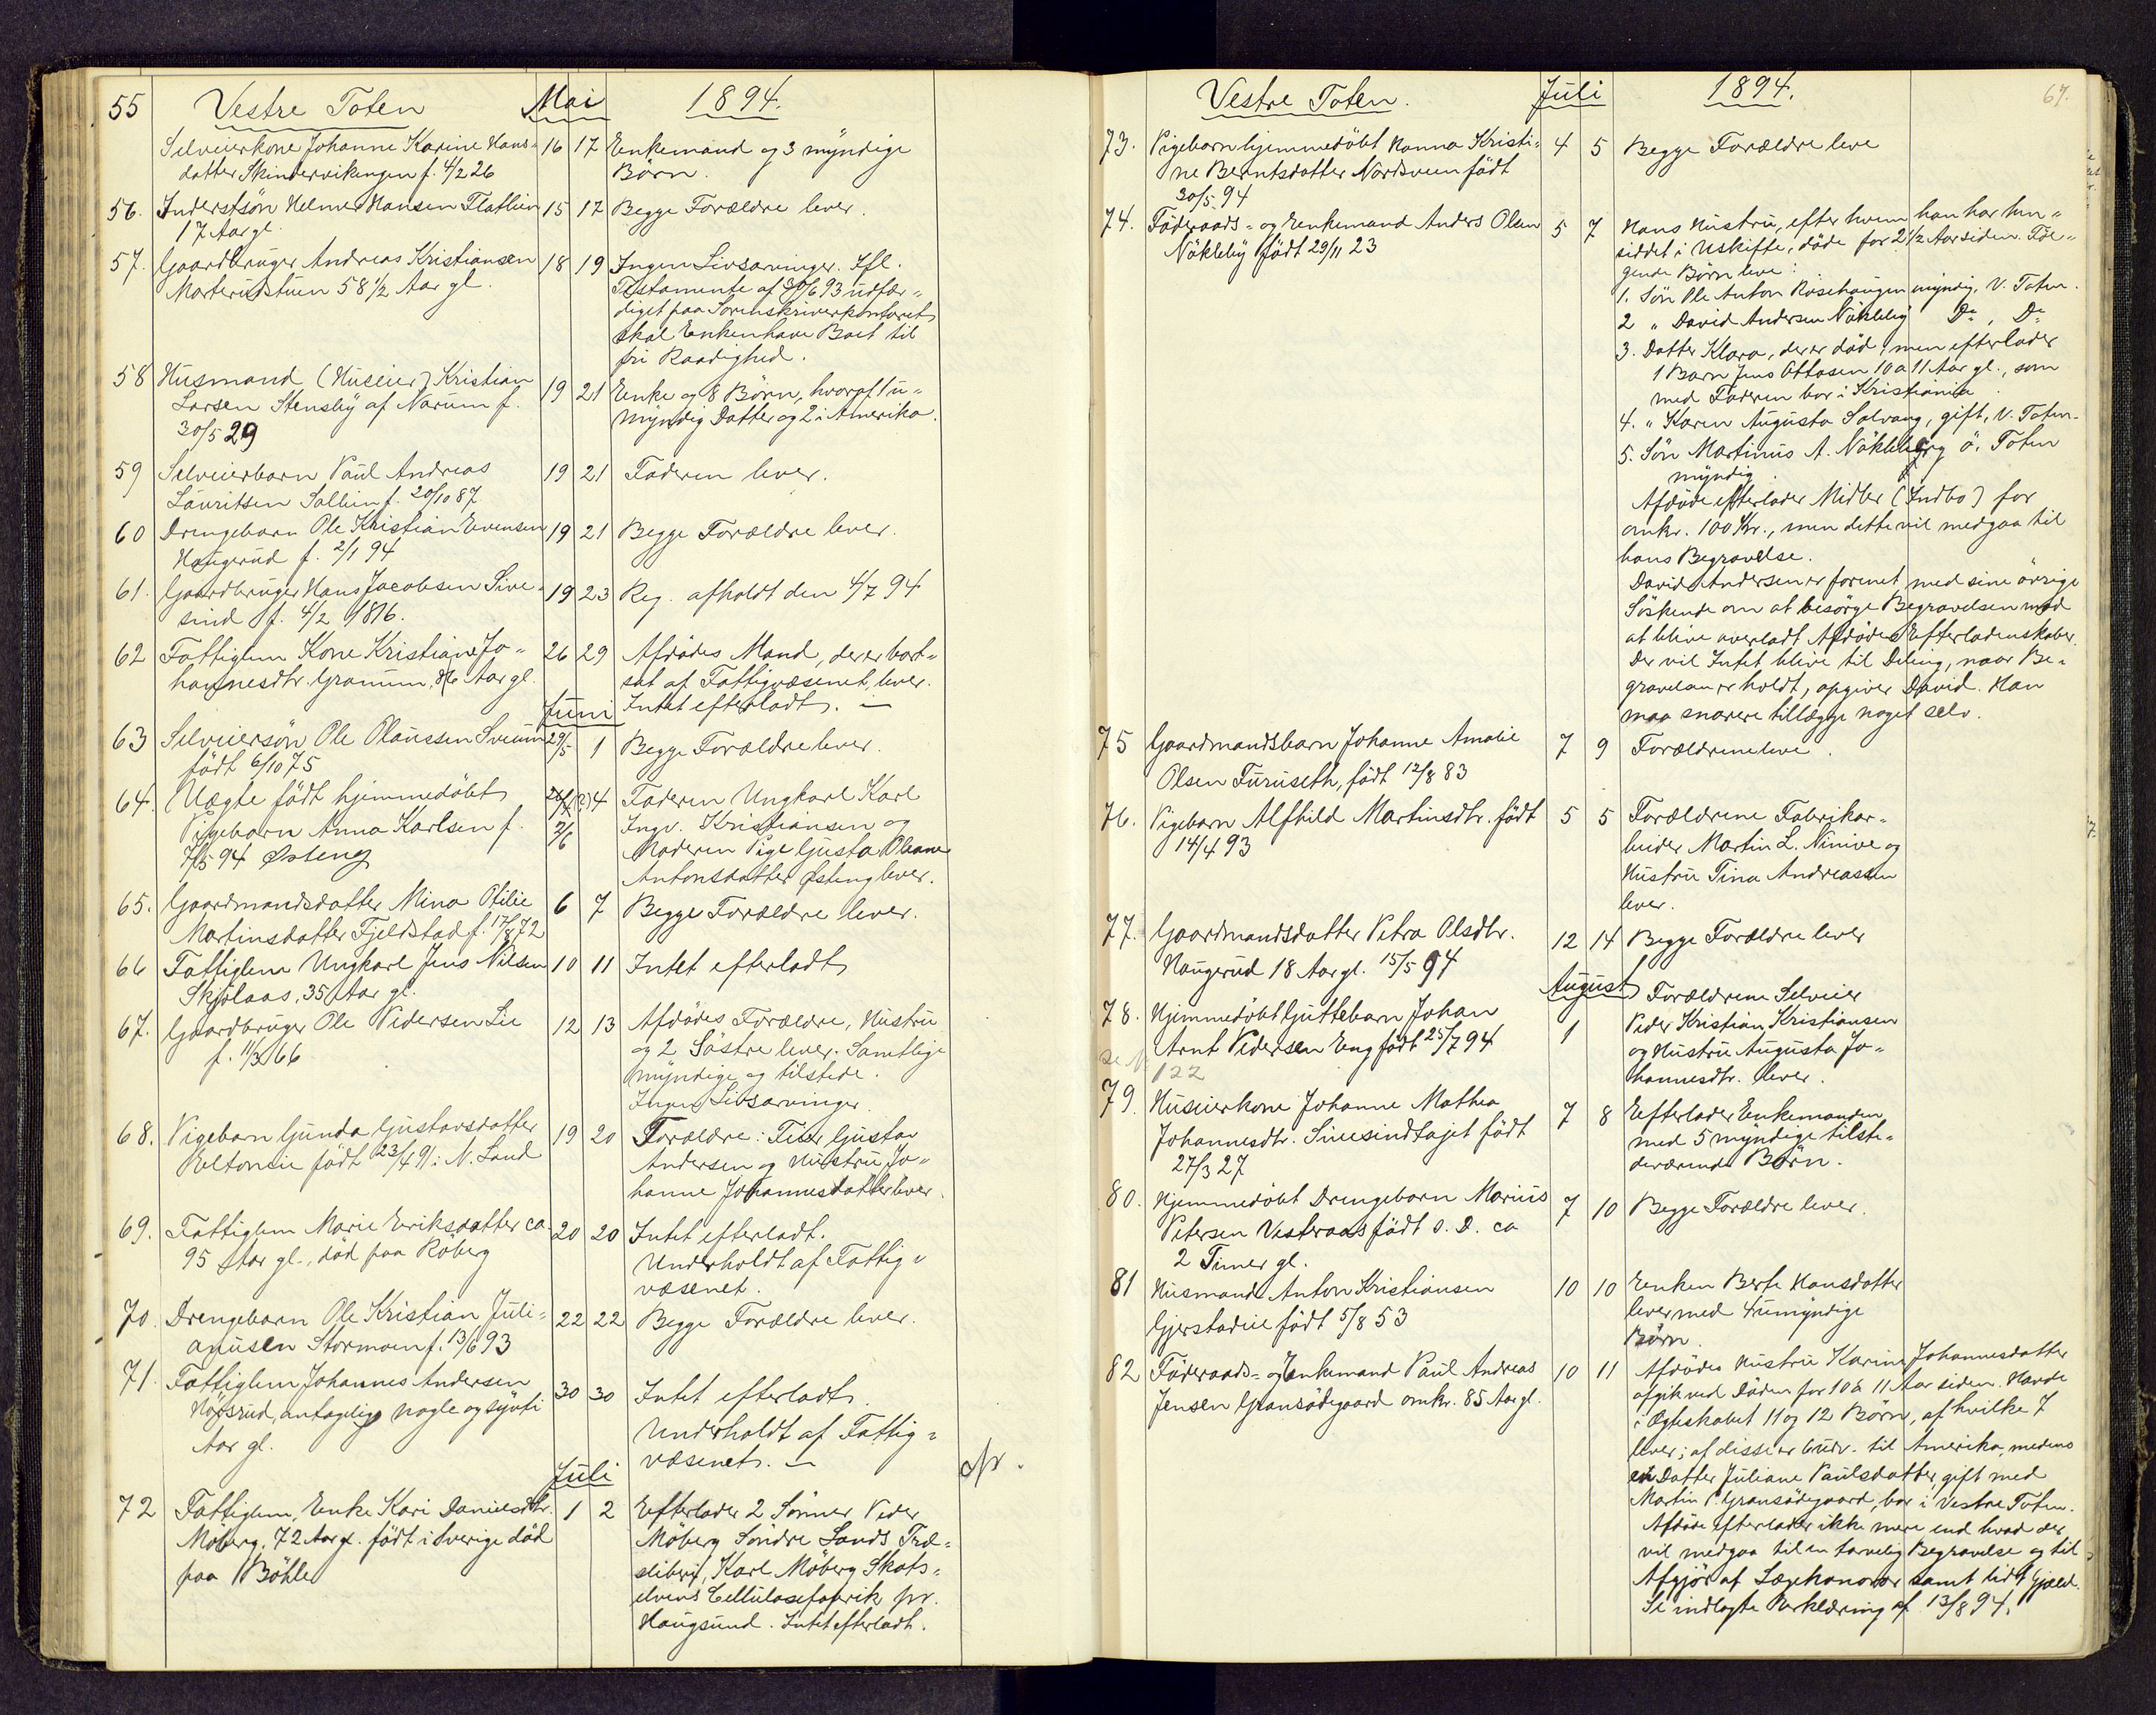 55 Vestre Toten Mai 1894.
Selveierkone Johanne Karine Hans- 16 17 Enkemand og 3 myndige
datter Skindervikengen f. 4/2 26 Börn.
56. Inderstsön Helmer Hansen Flatlien 15 17 Begge Forældre lever.
17 Aar gl.
57. Gaardbruger Andreas Kristiansen 18 19 Ingen Livsarvinger. Ifl.
Marterudstuen 58 1/2 Aar gl. Testamente af 30/6 93 udfær-
diget paa Sorenskriverkontoret
skal Enken have Boet til
fri Raadighed.
58 Husmand (Huseier) Kristian 19 21 Enke og 8 Börn, hvoraf 1 u-
Larsen Stensby af Narum f. myndig Datter og 2 i Amerika.
30/5 29
59 Selveierbarn Paul Andreas 19 21 Faderen lever.
Lauritsen Sollien f. 20/10 87
60 Drengebarn Ole Kristian Evensen 19 21 Begge Forældre lever.
Haugerud f. 2/1 94
61. Gaardbruger Hans Jacobsen Sive- 19 23 Reg. afholdt den 4/7 94
sind f. 4/2 1816.
62 Fattiglem Kone Kristiane Jo- 26 29 Afdödes Mand, der er bort-
hannesdtr. Granum, 86 Aar gl. sat af Fattigvæsenet, lever.
Juni Intet efterladt. —
63 Selveiersön Ole Olaussen Sveum 29/5 1 Begge Forældre lever.
födt 6/10 75
64. Uægte födt hjemmedöbt 26/5 (?) 4 Faderen Ungkarl Karl
Pigebarn Anna Karlsen f. 2/6 Ingv. Kristiansen og
7/5 94 Østeng Moderen Pige Gusta Oleane
Antonsdatter Østeng lever.
65. Gaardmandsdatter Mina Otilie 6 7 Begge Forældre lever.
Martinsdatter Fjeldstad f. 17/8 72
66 Fattiglem Ungkarl Jens Nilsen 10 11 Intet efterladt
Skjölaas, 35 Aar gl.
67. Gaardbruger Ole Pedersen Lie 12 13 Afdödes Forældre, Hustru
f. 11/3 66 og 2 Söstre lever. Samtlige
myndige og tilstede.
Ingen Livsarvinger.
68. Pigebarn Gunda Gustavsdatter 19 20 Forældre: Gustav
Eltoneie födt 23/4 91 i N. Land Andersen og Hustru Jo-
hanne Johannesdatter lever.
69. Fattiglem Marie Eriksdatter ca 20 20 Intet efterladt.
95 Aar gl., död paa Röberg Underholdt af Fattig-
væsenet.
70. Drengebarn Ole Kristian Juli- 22 22 Begge Forældre lever.
anusen Stormoen f. 13/6 93
71. Fattiglem Johannes Andersen 30 30 Intet efterladt.
antagelig nogle og sytti Underholdt af Fattig-
Aar gl. væsenet. —
Juli
72 Fattiglem, Enke Kari Danielsdtr. 1 2 Efterlader 2 Sönner Peder
Möberg, 72 Aar gl. födt i Sverige död Möberg Söndre Lands Træ-
paa Böhle sliberi, Karl Möberg Skots-
elvens Cellulosefabrik pr.
Haugsund. Intet efterladt.
67.
Vestre Toten. Juli 1894.
73. Pigebarn hjemmedöbt Hanna Kristi- 4 5 Begge Forældre leve
ne Berntsdatter Nordsveen födt
30/5 94
74. Föderaads- og Enkemand Anders Olsen 5 7 Hans Hustru, efter hvem han har hen-
Nökleby födt 29/11 23 siddet i Uskifte, döde for 2 1/2 Aar siden. Föl-
gende Börn leve:
1. Sön Ole Anton Rosehaugen myndig, V. Toten.
2 " David Andersen Nökleby Do, Do
3. Datter Klara, der er död, men efterlader
1 Barn Jens Ottosen 10 a 11 Aar gl., som
med Faderen bor i Kristiania
4. " Karen Augusta Solvang, gift, V. Toten.
5. Sön Martinus A. Nökleby Ö. Toten
myndig.
Afdöde efterlader Midler (Indbo) for
omkr. 100 Kr., men dette vil medgaa til
hans Begravelse.
David Andersen er forenet med sine övrige
Söskende om at besörge Begravelsen mod
at blive overladt Afdödes Efterladenskaber.
Der vil Intet blive til Deling, naar Be-
gravelsen er holdt, opgiver David. Han
maa snarere tillægge noget selv.
75 Gaardmandsbarn Johanne Amalie 7 9 Forældrene leve.
Olsen Furuseth, födt 12/8 83
76. Pigebarn Alfhild Martinsdtr. födt 5 5 Forældrene Fabrikar-
14/4 93 beider Martin L. Ninive og
Hustru Tina Andreassen
lever.
77. Gaardmandsdatter Petra Olsdtr. 12 14 Begge Forældre lever
Haugerud 18 Aar gl. 15/5 94
August
78. Hjemmedöbt Guttebarn Johan 1 Forældrene Selveier
Arnt Pedersen Eng födt 25/7 94 Peder Kristian Kristiansen
se N 122 og Hustru Augusta Jo-
hannesdtr. lever.
79. Huseierkone Johanne Mathea 7 8 Efterlader Enkemanden
Johannesdtr. Sivesindhajet födt med 5 myndige tilste-
27/3 27 deværende Börn.
80. Hjemmedöbt Drengebarn Marius 7 10 Begge Forældre lever.
Petersen Vesteraas födt s. D. ca
2 Timer gl.
81 Husmand Anton Kristiansen 10 10 Enken Berte Hansdatter
Gjerstadeie födt 5/8 53 lever med 4 umyndige
Börn.
82 Föderaads- og Enkemand Paul Andreas 10 11 Afdödes Hustru Karine Johannesdatter
Jensen Gransödegaard omkr. 85 Aar gl. afgik ved Döden for 10 à 11 Aar siden. Havde
i Ægteskabet 11 og 12 Börn, af hvilke 7
lever; af disse er 6 udv. til Amerika, medens
en Datter Juliane Paulsdatter, gift med
Martin P. Gransödegaard, bor i Vestre Toten.
Afdöde efterlader ikke mere end hvad der
vil medgaa til en tarvelig Begravelse og til
Afgjör af Lægehonorar samt lidt Gjæld.
Se indlagte Erklæring af 13/8 94.